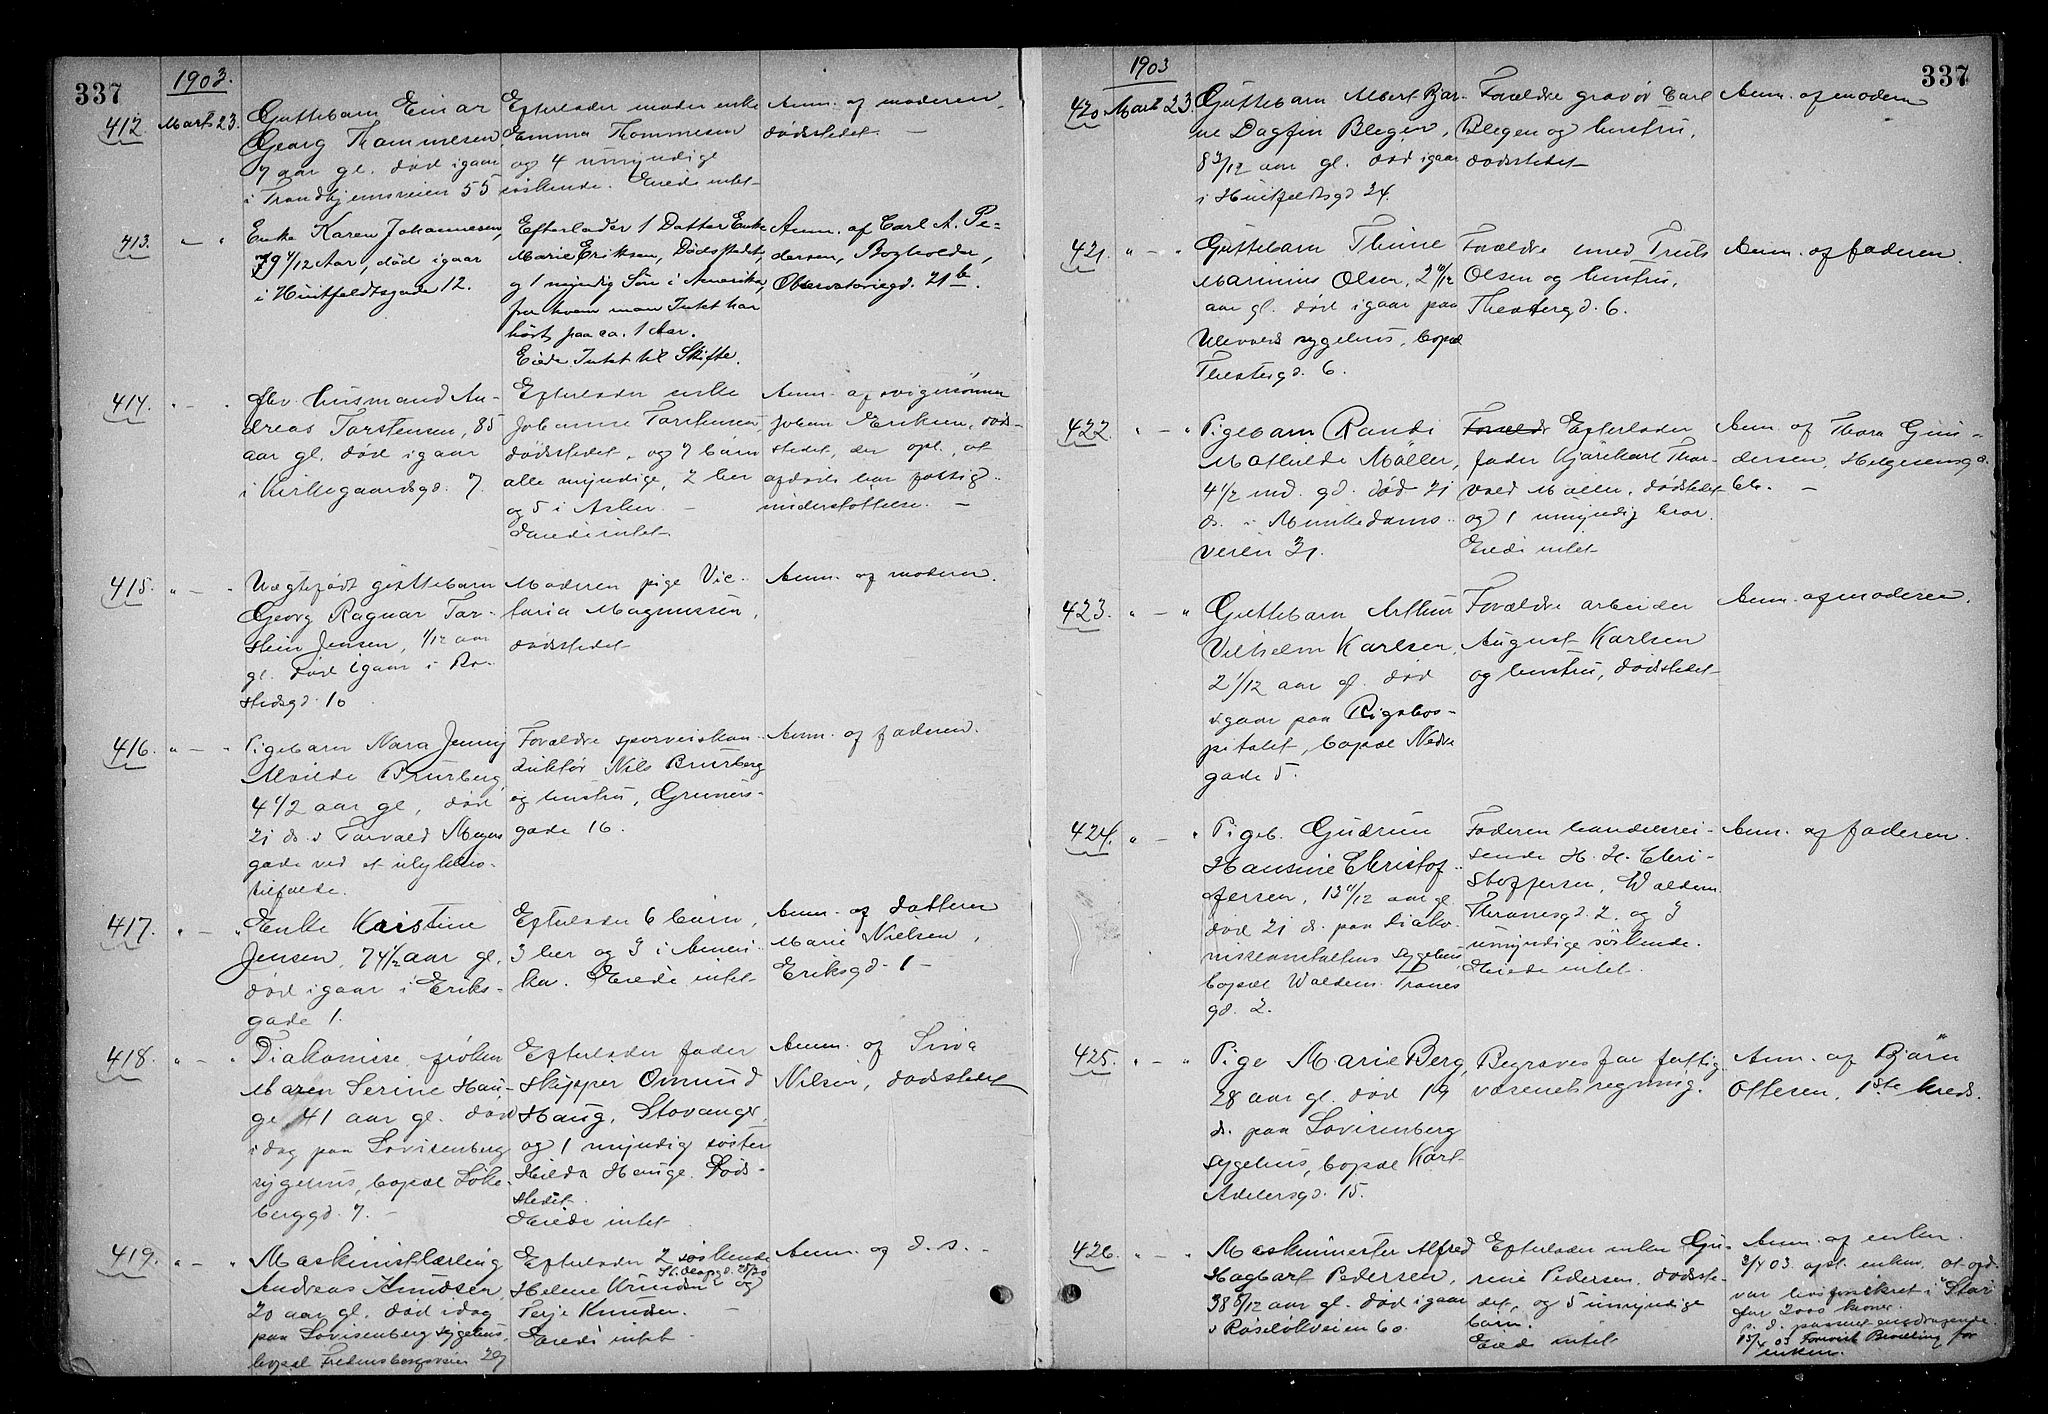 337
1903.
412. Marts 23.
Guttebarn Einar
Georg Thommesen
7 aar gl. død igaar
i Trondhjemsveien 55
Efterlader moder enke
Emma Thommesen
og 4 umyndige
søskende. Eiede intet
Anm. af moderen
dødstedet. —
413. " — "
Enke Karen Johannesen,
79 4/12 Aar, død igaar
i Huitfeldtsgade 12.
Efterlader 1 Datter Enke
Marie Eriksen, Dødsstedet,
og 1 myndig Søn i Amerika,
fra hvem man Intet har
hørt paa ca. 1 Aar.
Eiede Intet til Skifte.
Anm. af Carl A. Pe-
dersen, Bogholder,
Observatoriegd. 21 b.
414. " — "
fhv. husmand An-
dreas Torstensen, 85
aar gl. død igaar
i Kirkegaardsgd. 7.
Efterlader enke
Johanne Torstensen
dødstedet, og 7 børn
alle myndige, 2 her
og 5 i Asker. —
Eiede intet
Anm. af svigersønnen
Johan Eriksen, død-
stedet, der opl., at
afdøde har fattig-
understøttelse. —
415. " — "
Uægtefødt guttebarn
Georg Ragnar Tor-
stein Jensen, 1/12 aar
gl. død igaar i Ro-
stedsgd. 10
Moderen pige Vic-
toria Magnussen,
dødstedet
Anm. af moderen.
416. " — "
Pigebarn Nora Jenny
Alvilde Brurberg,
4 1/2 aar gl, død
21 ds. i Torvald Meyers
gade ved et ulykkes-
tilfælde.
Forældre sporveiskon-
duktør Nils Brurberg
og hustru, Grüners-
gade 16.
Anm. af faderen.
417. " — "
Enke Kristine
Jensen, 74 1/2 aar gl.
død igaar i Eriks-
gade 1.
Efterlader 6 børn,
3 her og 3 i Ameri-
ka. Eiede intet
Anm. af datteren
Marie Nielsen,
Eriksgd. 1 —
418. " — "
Diakonisse frøken
Maren Serine Hau-
ge 41 aar gl. død
idag paa Lovisenberg
sygehus, bopæl Løke-
berggd. 7. —
Efterlader fader
Skipper Omund
Haug, Stavanger,
og 1 myndig søster
Hilda Hauge. Død-
stedet.
Eiede intet
Anm. af
Nilsen, dødstedet
419. " — "
Maskinistlærling
Andreas Knudsen
20 aar gl. død idag
paa Lovisenberg sygehus,
bopæl Fredensborgveien
Efterlader 2 søskende
Helene Knudsen og
Terje Knudsen. —
Eiede intet
Anm. af d. s. —
1903
337
420 Marts 23
Guttebarn Albert Bar-
ne Dagfin Blegen,
8 3/12 aar gl. død igaar
i Huitfeldtsgd 24.
Forældre gravør Carl
Blegen og hustru,
dødstedet
Anm. af moderen
421. " — "
Guttebarn Thime
Marinius Olsen, 2 11/12
aar gl. død igaar paa
Ulevaal sygehus, bopæl
Theatergd. 6.
Forældre smed Truls
Olsen og hustru,
Theatergd. 6.
Anm. af faderen.
422. " — "
Pigebarn Randi
Mathilde Møller,
4 1/2 md. gl. død 21
ds. i Munkedams-
veien 31.
Forældre Efterlader
fader Kjørekarl Thor-
vald Møller, dødstedet
og 1 umyndig bror.
Eiede intet
Anm. af Thora Gun-
dersen, Helgesensgd.
66. —
423. " — "
Guttebarn Arthur
Vilhelm Karlsen,
2 1/12 aar gl. død
igaar paa Rigshos-
pitalet, bopæl Nedre
gade 5.
Forældre arbeider
August Karlsen
og hustru, dødstedet
Anm. af moderen.
424. " — "
Pigeb. Gudrun
Hansine Christof-
fersen, 13 11/12 aar gl.
død 21 ds. paa Diako-
nisseanstaltens sygehus
bopæl Waldem. Tranes
gd. 2.
Faderen handelsrei-
sende H. H. Chri-
stoffersen, Waldem.
Thranesgd. 2. og 3
umyndige søskende.
Eiede intet.
Anm. af faderen.
425. " — "
Pige Marie Berg,
28 aar gl. død 19
ds. paa Lovisenberg
sygehus, bopæl Karl
Adelersgd. 15.
Begraves for fattig-
væsenets regning.
Anm. af Bjørn
Ottesen, 1ste kreds.
426. " — "
Maskinmester Alfred
Hagbart Pedersen,
38 5/12 aar gl. død igaar
i Røseløkveien 60.
Efterlader enken Gu-
rine Pedersen, dødste-
det, og 5 umyndige
børn.
Eiede intet
Anm. af enken.
3/4 03. opl. enken, at afd.
var livsforsikret i "Star"
for 2000 kroner.
15/4 03 Forevist Bevilling for
enken.